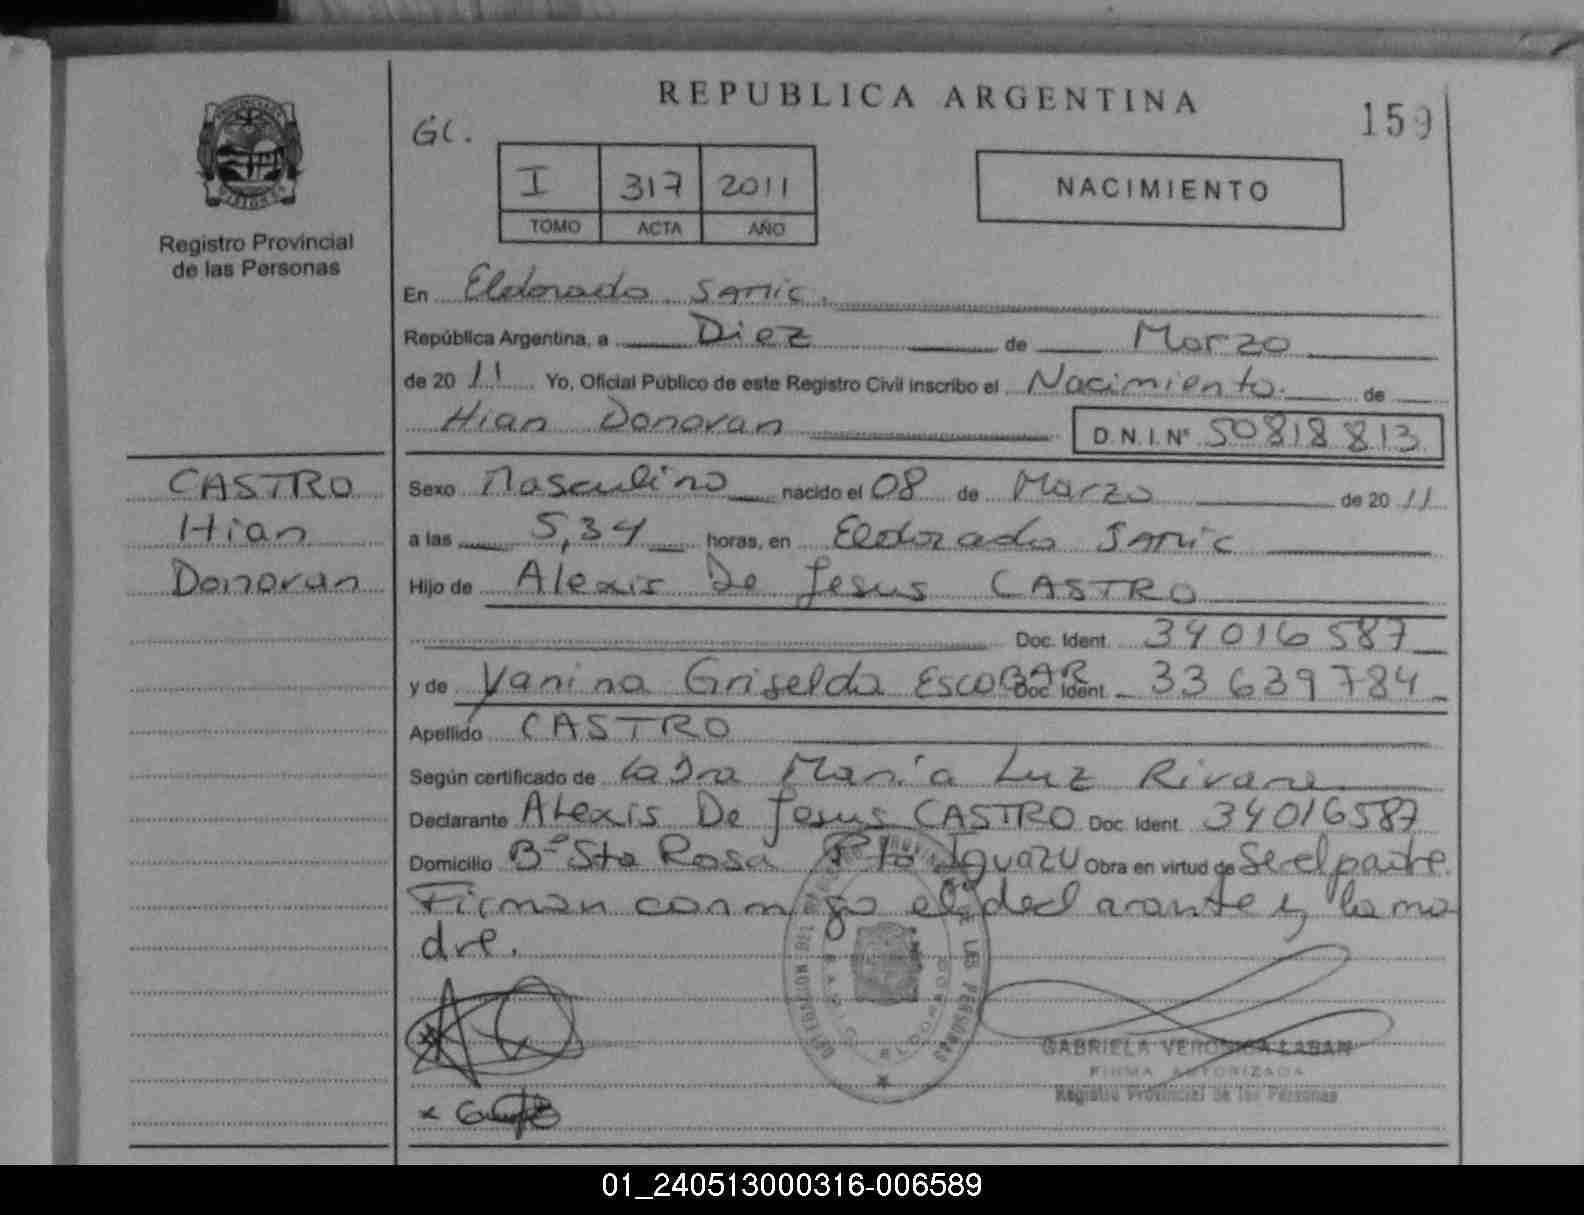 REPUBLICA ARGENTINA
159
GC.
I 317 2011
TOMO ACTA AÑO
NACIMIENTO
Registro Provincial
de las Personas
En Eldorado SAMIC.
República Argentina, a Diez de Marzo
de 20 11 Yo, Oficial Público de este Registro Civil inscribo el Nacimiento de
Hian Donovan D.N.I.Nº 50818813
CASTRO
Hian
Donovan
Sexo Masculino nacido el 08 de Marzo de 20 11
a las 5,34 horas, en Eldorado SAMIC
Hijo de Alexis De Jesus CASTRO
Doc. Ident. 34016587
y de Yanina Griselda ESCOBAR Doc. Ident. 33639784
Apellido CASTRO
Según certificado de la Dra María Luz
Declarante Alexis De Jesus CASTRO Doc. Ident. 34016587
Domicilio Bº Sta Rosa Pto Iguazu Obra en virtud de Ser el padre.
Firman conmigo el declarante y la ma
dre.
DE LAS PERSONAS
ELDORADO
GABRIELA VERONICA LABAN
FIRMA AUTORIZADA
Registro Provincial de las Personas
01_240513000316-006589